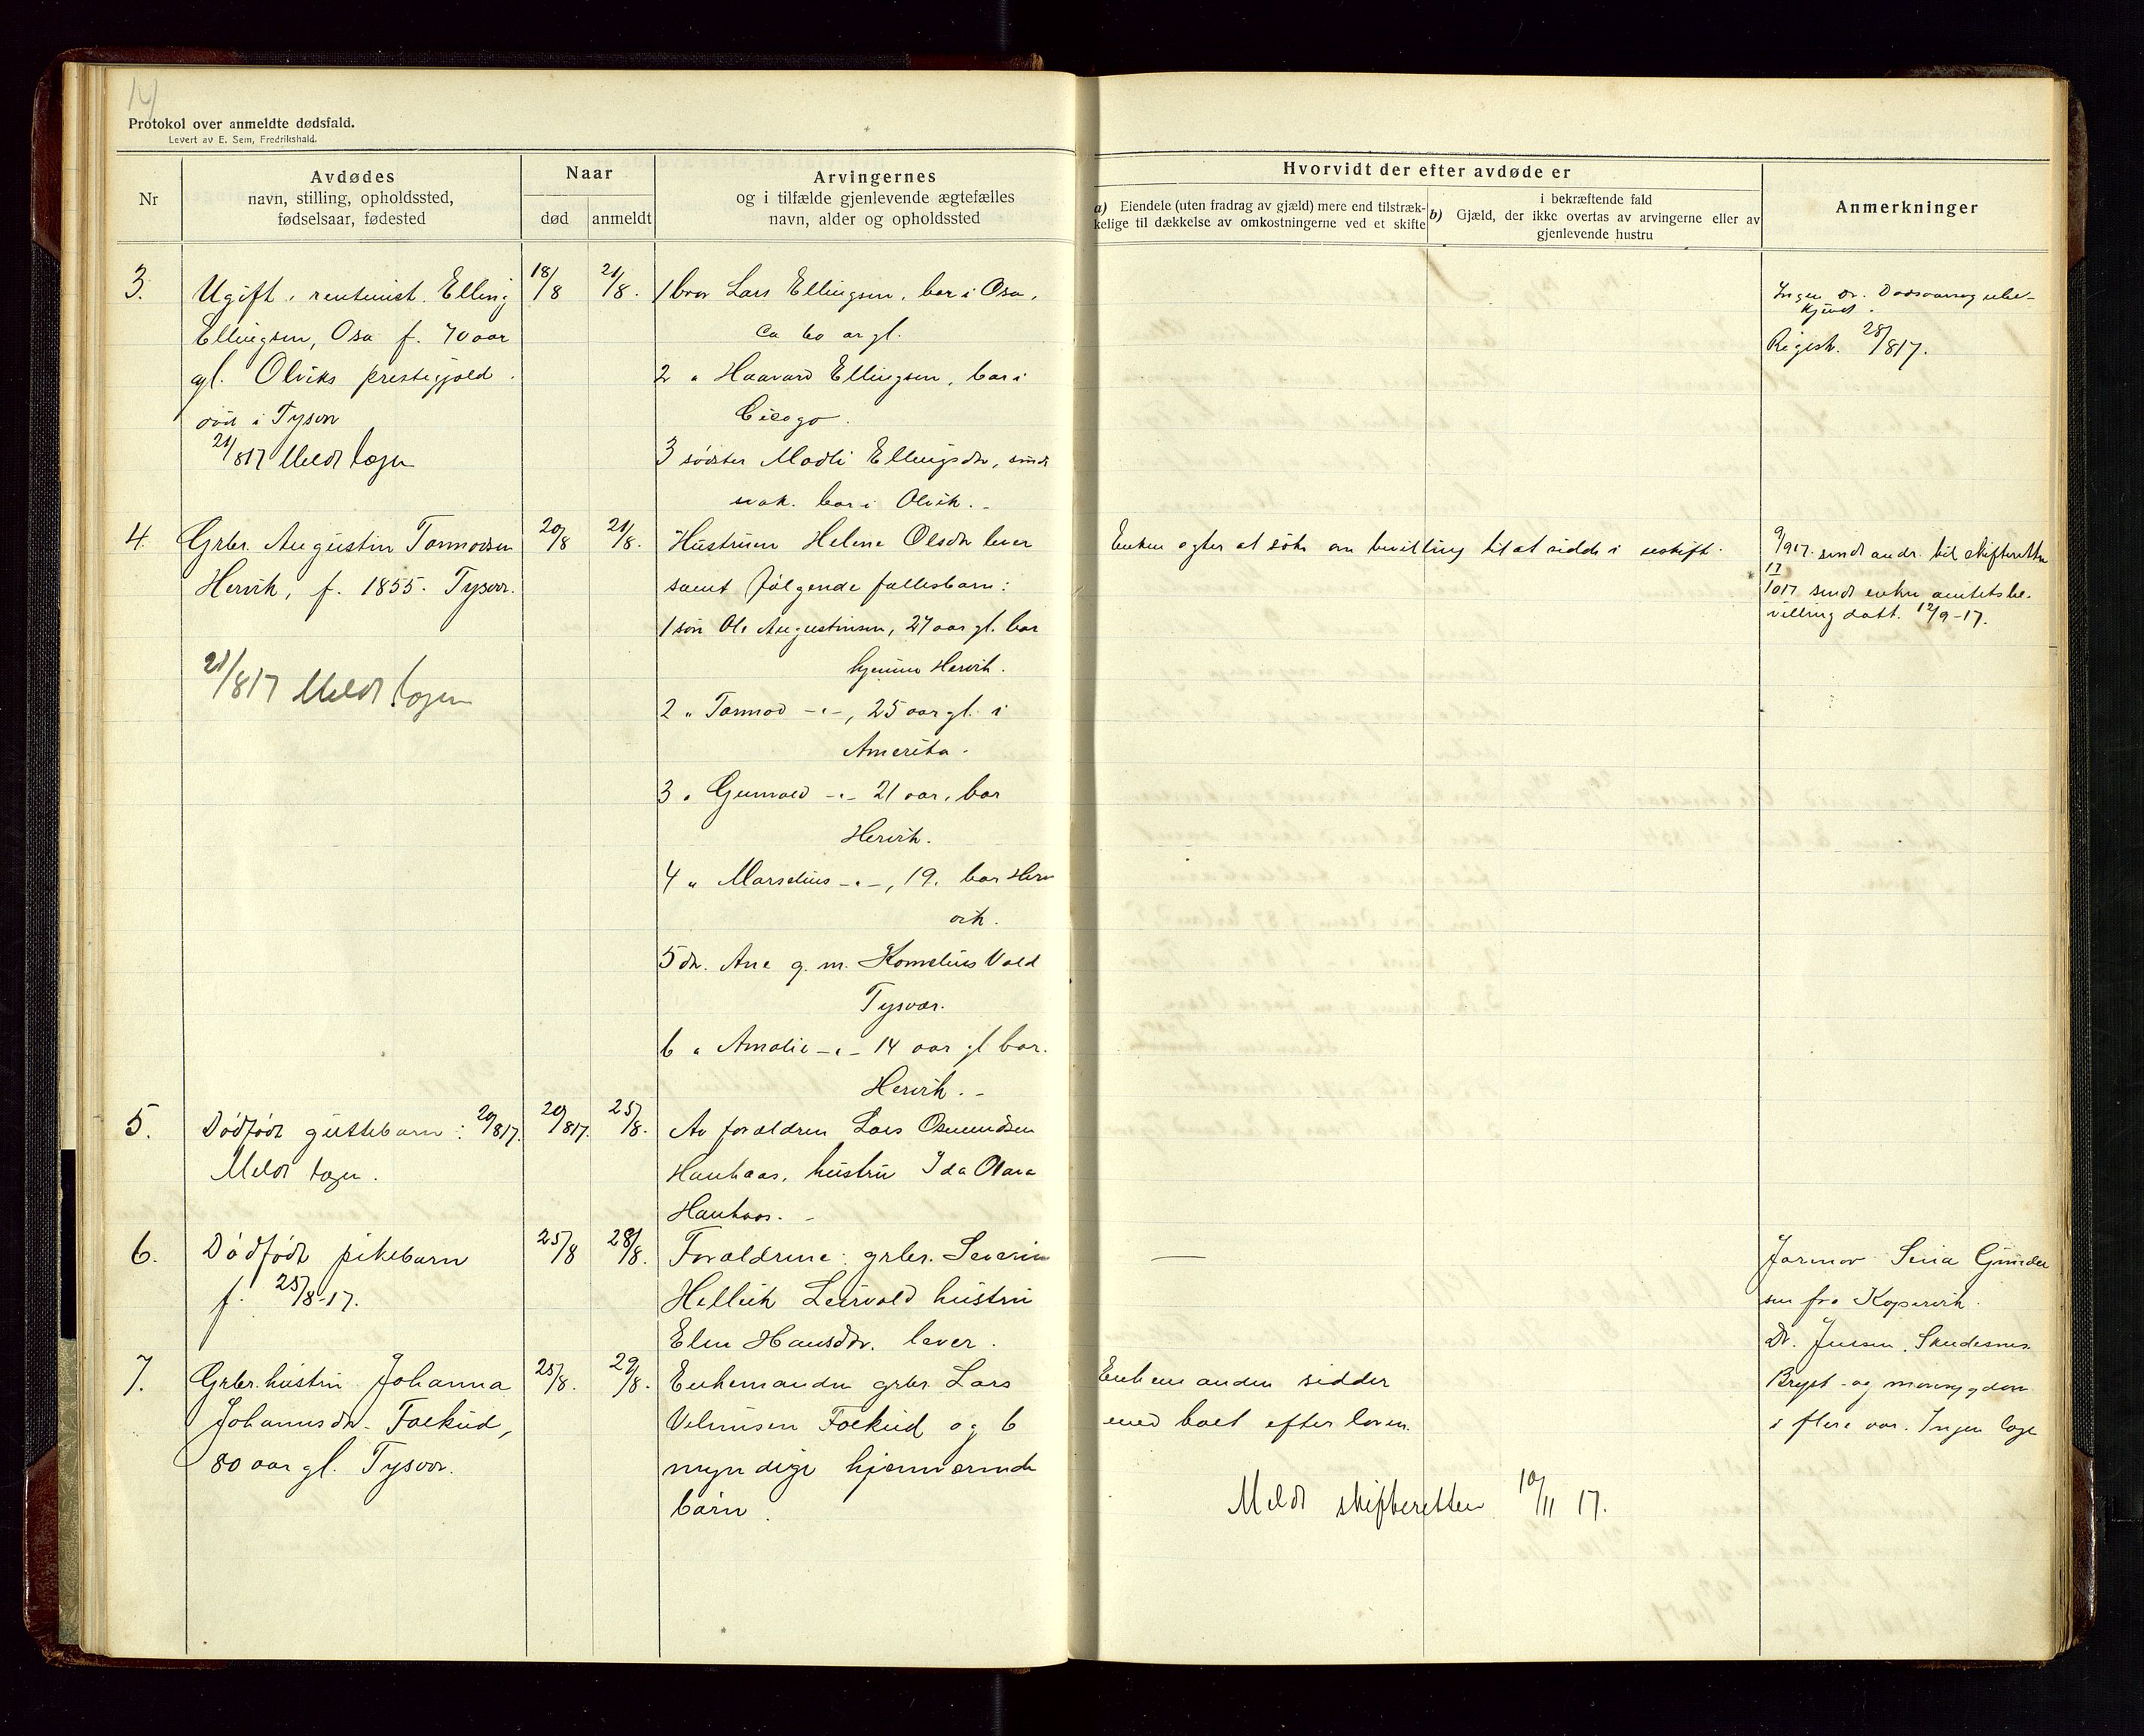 14
Protokol over anmeldte dødsfald.
Levert av E. Sem, Fredrikshald.
Nr
Avdødes
navn, stilling, opholdssted,
fødselsaar, fødested
Naar
død
anmeldt
Arvingernes
og i tilfælde gjenlevende ægtefælles
navn, alder og opholdssted
Hvorvidt der efter avdøde er
a) Eiendele (uten fradrag av gjæld) mere end tilstræk-
kelige til dækkelse av omkostningerne ved et skifte
i bekræftende fald
b) Gjæld, der ikke overtas av arvingerne eller av
gjenlevende hustru
Anmerkninger
3.
Ugift, rentenist. Elling
Ellingsen, Osa f. 70 aar
gl. Olviks prestegjæld.
død i Tysvær
21/817 Meldt lægen
18/8
21/8.
1 bror Lars Ellingsen, bor i Osa,
ca 60 ar gl.
2 " Haavard Ellingsen, bor i
3 søster Ellingsdr, sinds
svak. bor i Olvik.-
Ingen Dr. Dødsaarsag ube-
kjendt.
Regist. 28/817.
4.
Grbr. Augustin Tormodsen
Hervik, f. 1855. Tysvær.
21/817 Meldt lægen
20/8
21/8.
Hustruen Helene Olsdr lever
samt følgende fællesbarn:
1 søn Ole Augustinsen, 27 aar gl. bor
hjemme Hervik.
2 " Tormod -"-, 25 aar gl. i
Amerika.
3 " Gunvald -"- 21 aar, bor
Hervik.
4 " Marselius -"-, 19. bor Her
vik.
5 dr. Ane g. m. Kornelius Vold
Tysvær.
6 " Amalie -"- 14 aar gl bor.
Hervik.-
Enken agter at søke om bevilling til at sidde i uskift.
9/917. sendt andr. til skifteretten
17/1017 sendt enken amtets be-
villing datt. 12/9-17.
5.
Dødfødt guttebarn: 20/817.
Meldt lægen.
20/817.
25/8.
Av forældren Lars Osmundsen
Hauhaar, hustru Ida Olava
Hauhaar.-
6.
Dødfødt pikebarn
f. 25/8-17.
25/8
28/8.
Forældrene: grbr. Severin
Leirvold hustru
Elen Hansdtr. lever.
—
Jormor Sina Gunder
sen fra Kopervik.
Dr. Jensen, Skudesnes
7.
Grbr. hustru Johanna
Johannsdr. Falkeid,
80 aar gl. Tysvær.
25/8.
29/8.
Enkemanden grbr. Lars
Falkeid og 6
myndige hjemværende
børn.
Enkemanden sidder
med boet efter loven.
Meldt skifteretten 10/11 17.
Bryst- og mavesygdom
i flere aar. Ingen læge